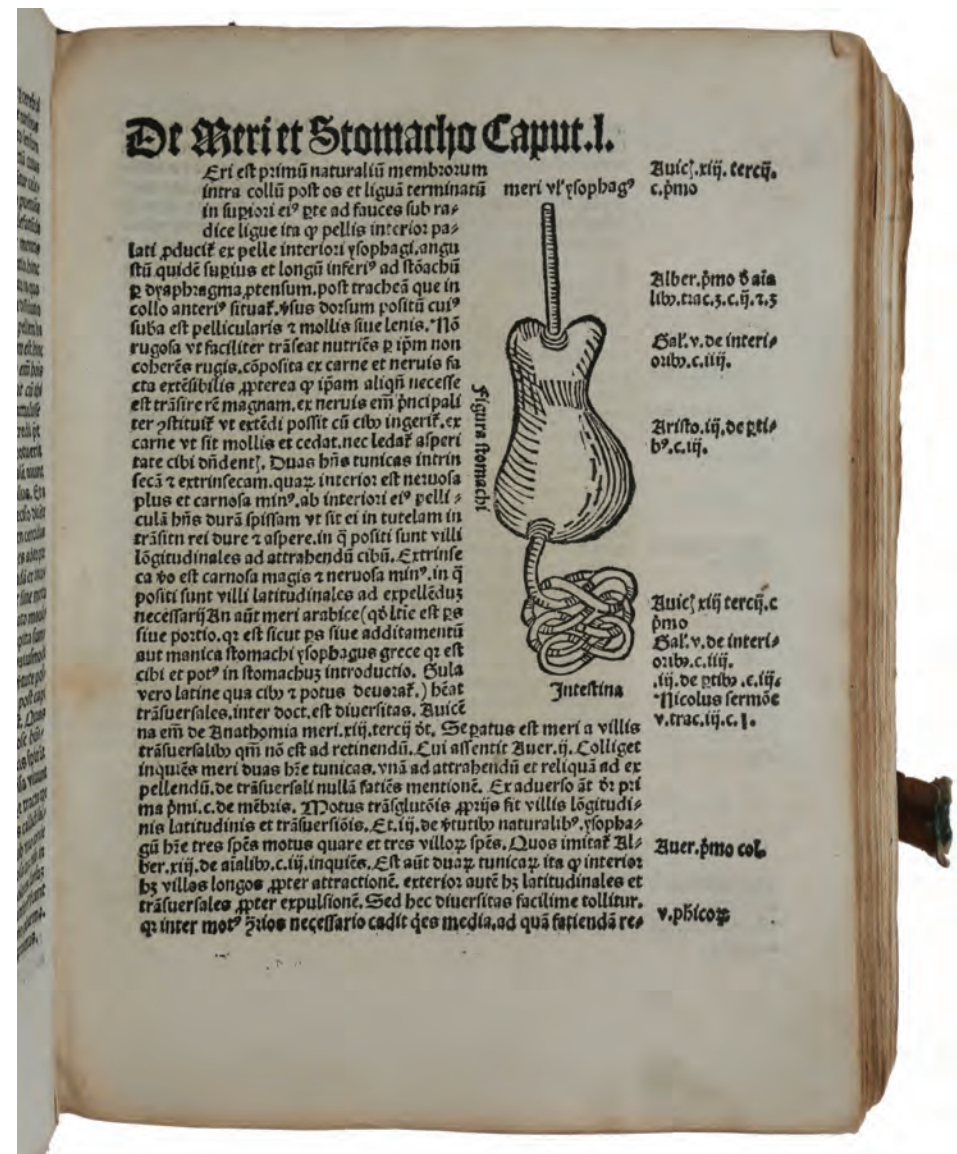 De Meri et Stomacho Caput.I.
Eri est primū naturaliū membrorum
intra collū post os et liguā terminatū
in supiori ei⁹ pte ad fauces sub ra⸗
dice ligue ita ꝙ pellis interior pa⸗
lati ꝓducit᷑ ex pelle interiori ysophagi.angu
stū quidē supius et longū inferi⁹ ad stōachū
ꝑ dyaphragma ꝓtensum.post tracheā que in
collo anteri⁹ situat᷑.v̓sus dorsum positū cui⁹
suba est pellicularis ⁊ mollis siue lenis.*Nō
rugosa vt faciliter trāseat nutriēs ꝑ ipm non
coherēs rugis.cōposita ex carne et neruis fa
cta extēsibilis ꝓpterea ꝙ ipam aliqn̄ necesse
est trāsire rē magnam.ex neruis em̄ pncipali
ter ꝯstituit᷑ vt extēdi possit cū cib⁹ ingerit᷑.ex
carne vt sit mollis et cedat.nec ledat᷑ asperi
tate cibi dn̄dentꝭ. Duas hn̄s tunicas intrin
secā ⁊ extrinsecam.quaꝝ interior est neruosa
plus et carnosa min⁹.ab interiori ei⁹ pelli ⸗
culā hn̄s durā spissam vt sit ei in tutelam in
trāsitn rei dure ⁊ aspere.in q̄ positi sunt villi
lōgitudinales ad attrahendū cibū. Extrinse
ca v̓o est carnosa magis ⁊ neruosa min⁹.in q̄
positi sunt villi latitudinales ad expellēduꝫ
necessarij An aūt meri arabice (qd̓ ltīe est ps
siue portio.qꝛ est sicut ps siue additamentū
aut manica stomachi ysophagus grece qꝛ est
cibi et pot⁹ in stomachuꝫ introductio. Gula
vero latine qua cib⁹ ⁊ potus deuorat᷑.) hēat
trāsuersales.inter doct.est diuersitas. Auicē
na em̄ de Anathomia meri.xiij.tercij d̓t. Sepatus est meri a villis
trāsuersalibꝰ qm̄ nō est ad retinendū. Cui assentit Auer.ij. Colliget
inquiēs meri duas hr̄e tunicas.vnā ad attrahendū et reliquā ad ex
pellendū.de trāsuersali nullā fatiēs mentionē. Ex aduerso āt d̓r pri
ma p̄mi.c.de mēbris. Motus trāsglutōis ꝓprijs fit villis lōgitudi⸗
nis latitudinis et trāsuersiōis. Et.iij.de v̓tutibꝰ naturalib⁹.ysopha⸗
gū hr̄e tres spēs motus quare et tres villoꝝ spēs. Quos imitat᷑ Al⸗
ber.xiij.de aīalibꝰ.c.ij.inquiēs. Est aūt duaꝝ tunicaꝝ ita ꝙ interior
hꝫ villos longos ꝓpter attractionē. exterior autē hꝫ latitudinales et
trāsuersales ꝓpter expulsionē. Sed hec diuersitas facilime tollitur.
qꝛ inter mot⁹ ꝯ̄rios necessario cadit q̓es media.ad quā fatiendā re⸗
meri vl̓ ysophag⁹
Figura stomachi
Jntestina
Auicꝭ.xiij. tercij.
c.pmo
Alber.p̄mo d̓ aīa
libꝰ.trac.3.c.ij.⁊.3
Gal̓.v.de interi⸗
oribꝰ.c.iiij.
Aristo.iij.de pti⸗
b⁹.c.iij.
Auicꝭ xiij tercij.c
p̄mo
Gal̓.v.de interi⸗
oribꝰ.c.iiij.
.iij.de ptibꝰ .c.iij.
*Nicolus sermōe
v.trac.iij.c.I.
Auer.p̄mo col.
v.phicoꝝ